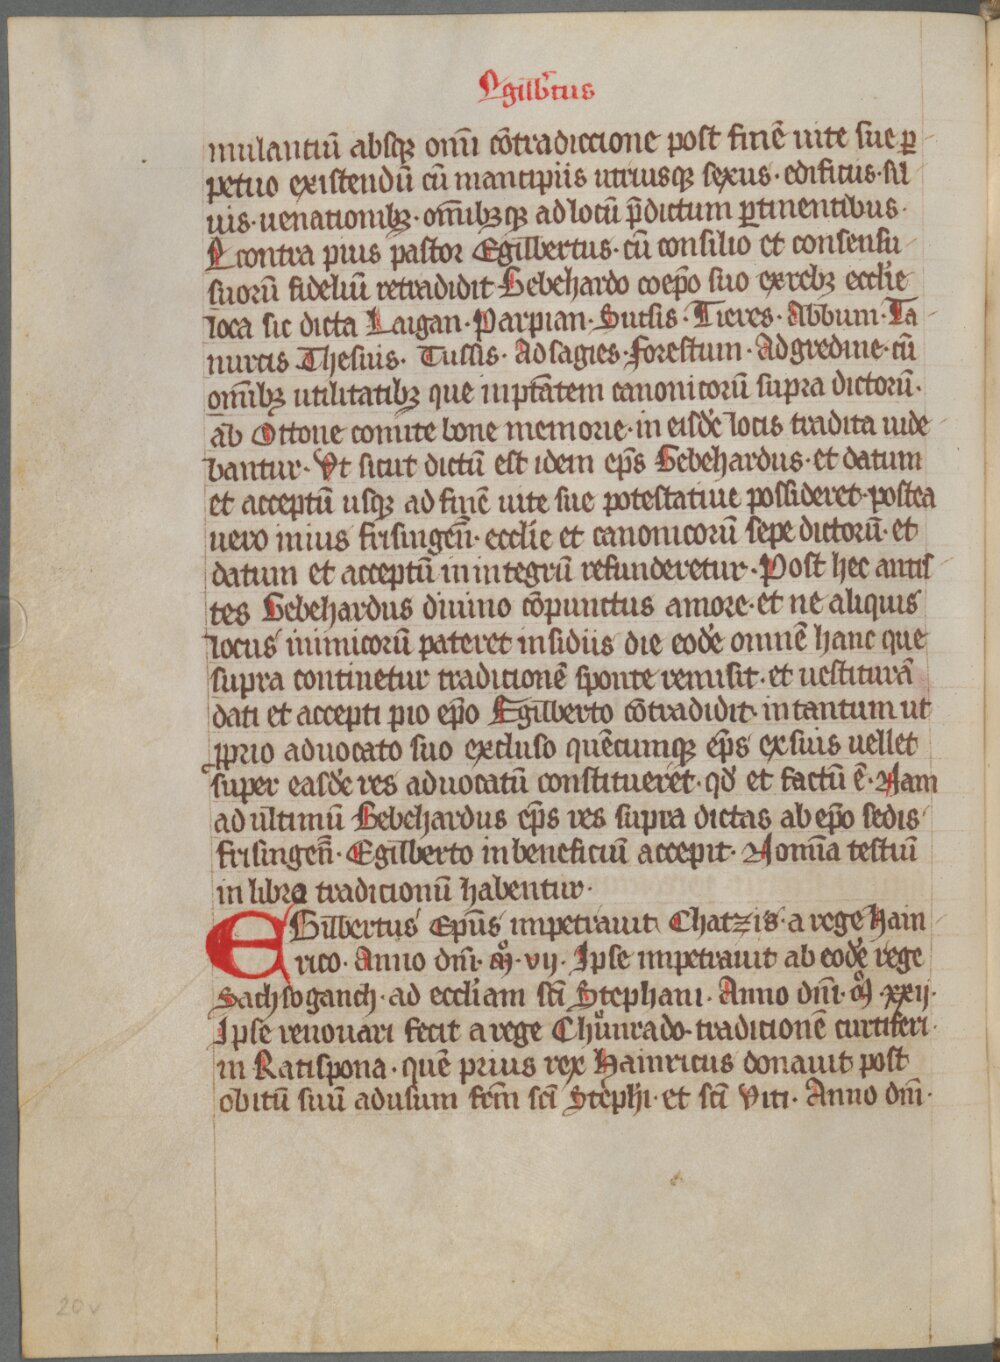 Egilb̄tus
mulantiū absqȝ om̄i cōtradiccione post finē uite sue ꝑ
petuo existendū cū mancipiis utriusqȝ sexus · edificiis · sil
uis · uenationibȝ · om̄ibȝqȝ ad locū p̄dictum ꝑtinentibus ·
E contra pius pastor Egilbertus · cū consilio et consensu
suorū fideliū retradidit Gebehardo coep̄o suo ex rebȝ eccl̄ie
loca sic dicta Laigan · Parpian · Sucsis · Tieres · Abbum · Ta
nurcis Thesuis · Tussis · Ad sagies · Forestum · Ad gredine · cū
om̄ibȝ utilitatibȝ que in ptātem canonicorū supra dictorū ·
ab Ottone comite bone memorie · in eisdē locis tradita uide
bantur · Vt sicut dictū est idem ep̄s Gebehardus · et datum
et acceptū usqȝ ad finē uite sue potestatiue possideret · postea
uero in ius frisingen̄ · eccl̄ie et canonicorū sepe dictorū · et
datum et acceptū in integrū refunderetur · Post hec antis
tes Gebehardus diuino cōpunctus amore · et ne aliquis
locus inimicorū pateret insidiis die eodē omnē hanc que
supra continetur tradicionē sponte remisit · et uestiturā
dati et accepti pio ep̄o Egilberto cōtradidit · in tantum ut
ꝓprio aduocato suo excluso quēcumqȝ ep̄s ex suis uellet
super easdē res aduocatū constitueret · qd̄ et factū ē · Nam
ad ultimū Gebehardus ep̄s res supra dictas ab ep̄o sedis
frisingen̄ · Egilberto in beneficiū accepit · Nomīa testiū
in libro tradicionū habentur ·
EGilbertus Ep̄us impetrauit Chatzis · a rege Hain
rico · Anno dn̄i · mͦ · vij · Ipse impetrauit ab eodē rege
Sachsoganch · ad eccl̄iam sc̄i Stephani · Anno dn̄i · mͦ · xxij ·
Ipse renouari fecit a rege Chůnrado · tradicionē curtiferi ·
in Ratispona · quē prius rex Hainricus donauit post
obitū suū ad usum fr̄m sc̄i Steph̄i · et sc̄i Viti · Anno dn̄i ·
20v